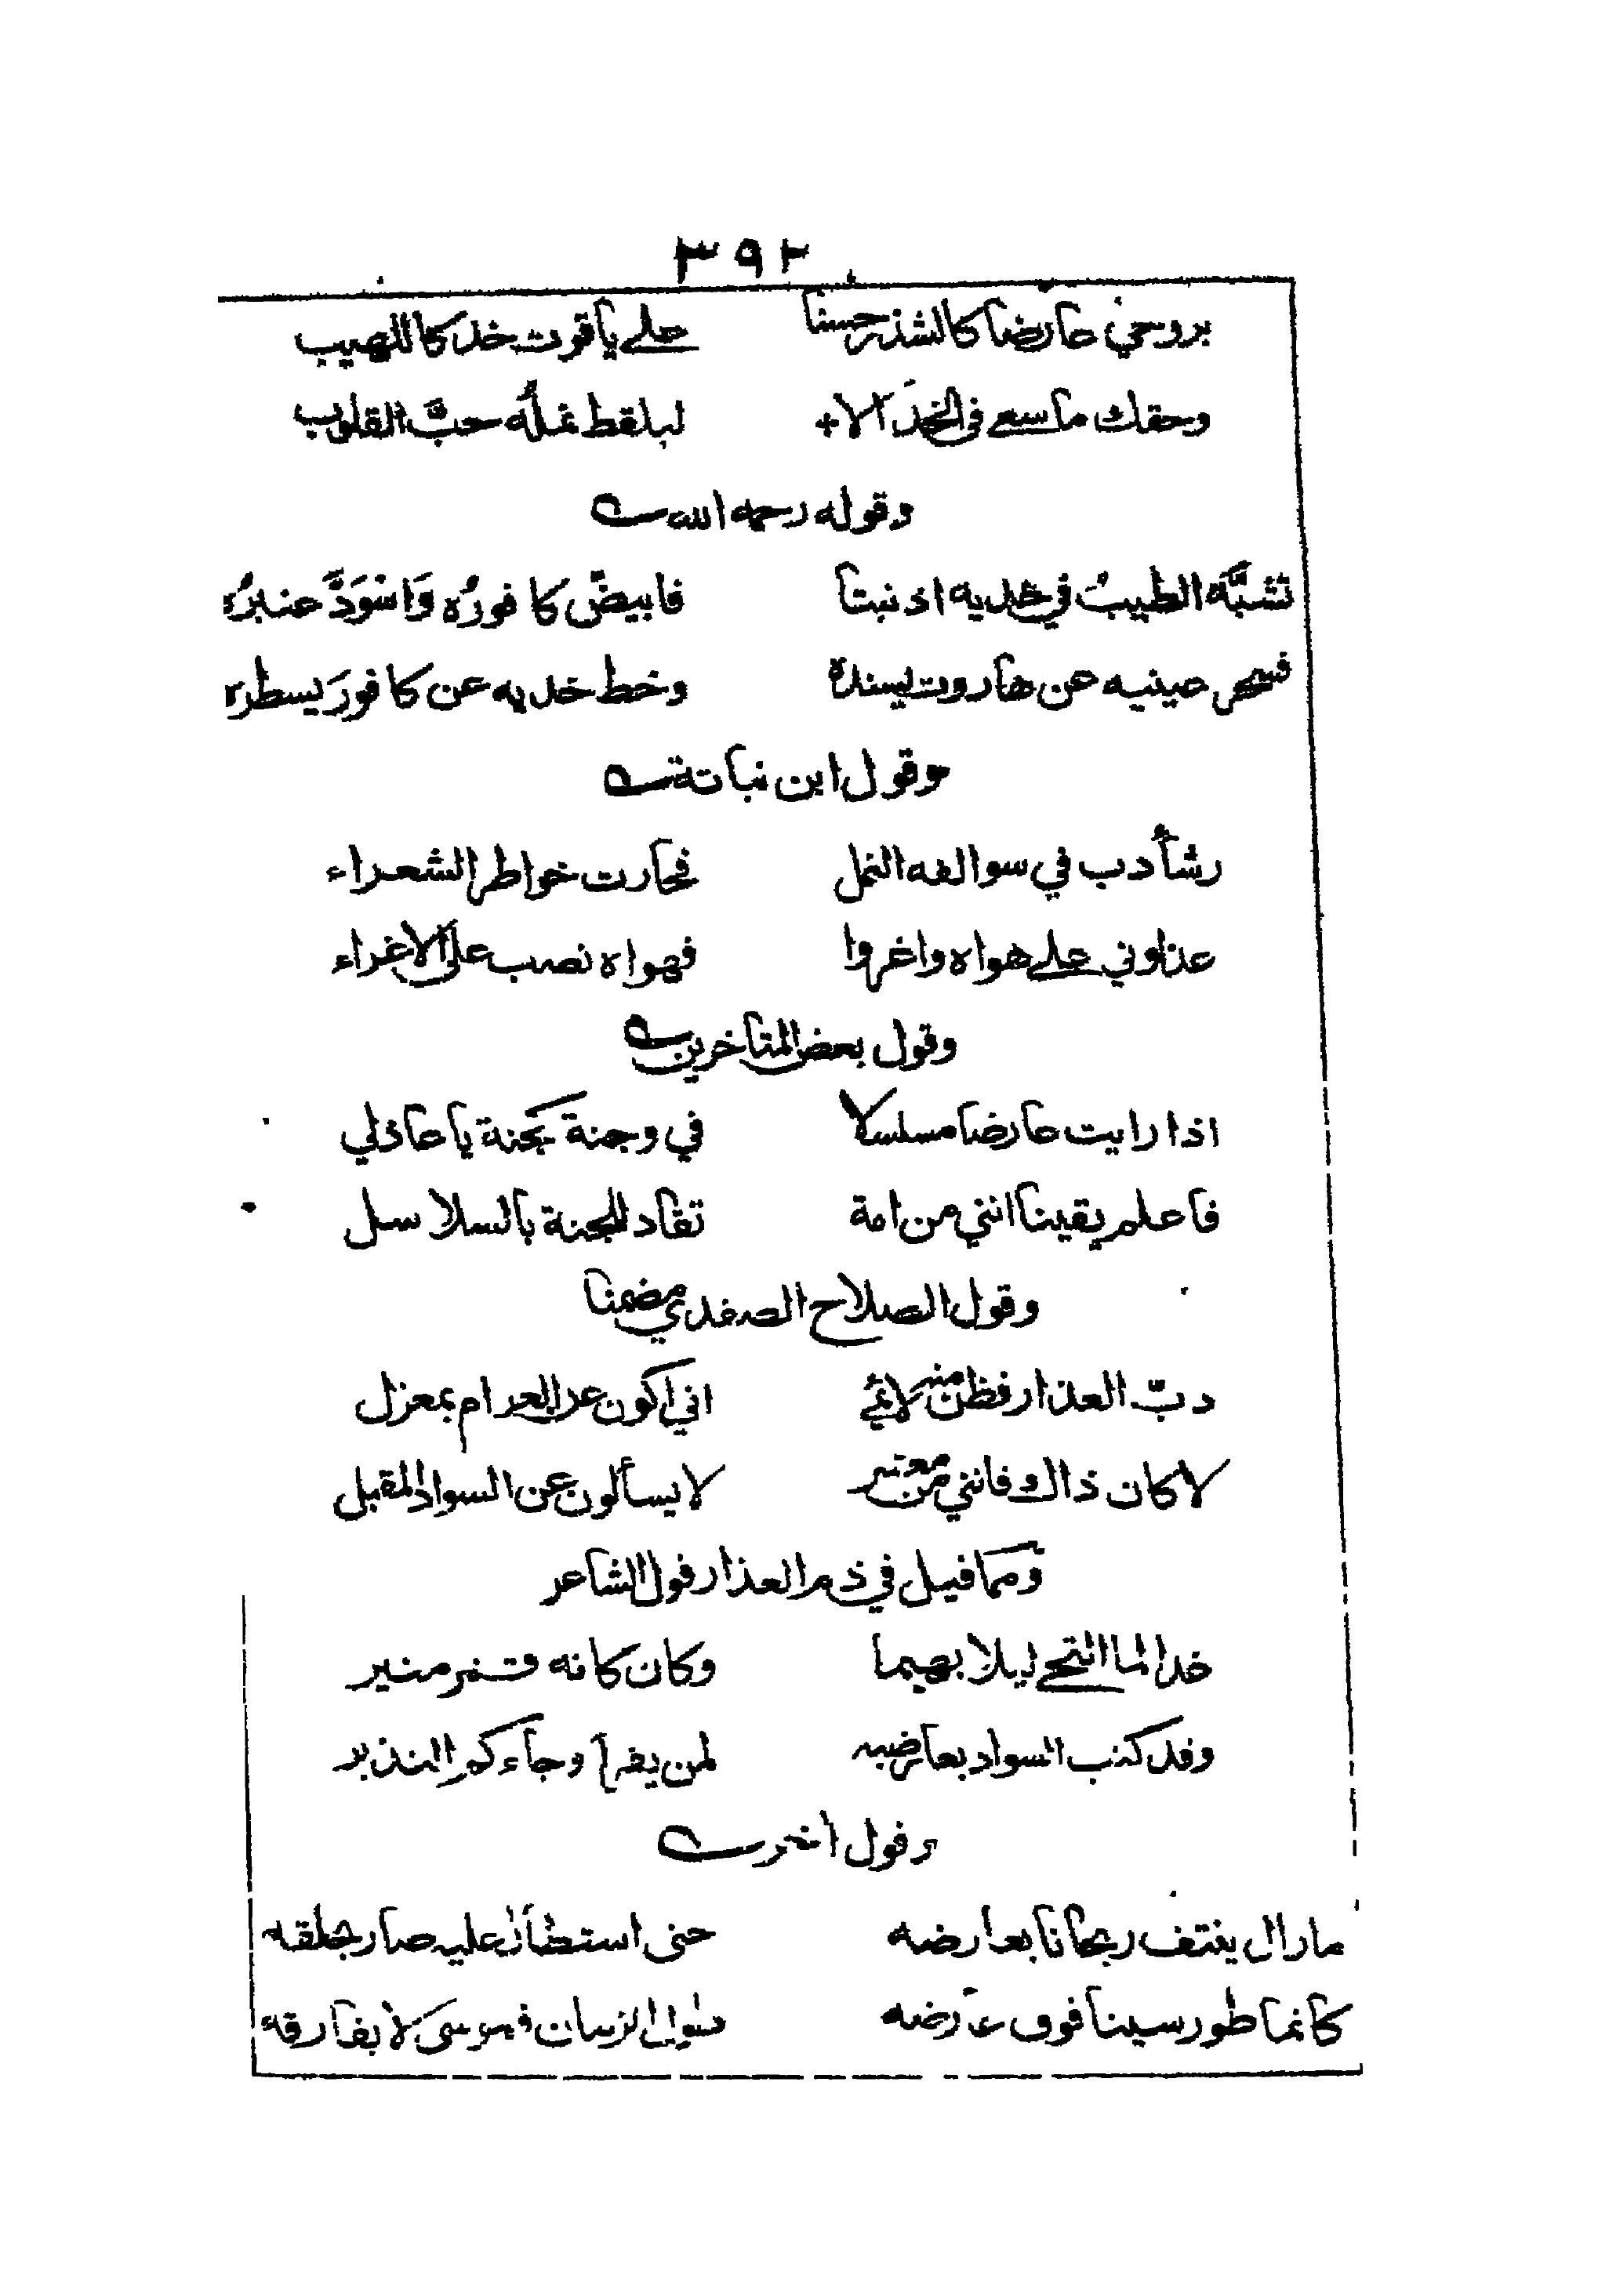 ٣٩٢
بروحي عارضا كالشذر حسنا على ياقوت خد كاللهيب
وحقك ما سعى في الخد الا ليلقط نمله حب القلوب
وقوله رحمه الله
تشبَّه الطبيبُ في خديه اذ نبتا فابيضّ كافورُه وَاسْوَدَّ عنبرُه
عينيه عن هاروت يسنده وخط خديه عن كافورَ يسطره
وقول ابن نباتة
رشأ دب في سوالفه النمل فحارت خواطر الشعراء
عذلوني على هواه واغروا فهواه نصب على الاغراء
وقول بعض المتأخرين
اذا رايت عارضا مسلسلا في وجنة كجنة يا عاذلي
فاعلم يقينا انني من امة تقاد للجنة بالسلاسل
وقول الصلاح الصفدي مضمنا
دبّ العذار فظن منه لائمي اني اكون عن الغرام بمعزل
لا كان ذاك فانني من معشر لا يسألون عن السواد المقبل
ومما قيل في ذم العذار قول الشاعر
غدا لما التحى ليلا بهيما وكان كانه قمر منير
وقد كتب السواد بعارضيه لمن يقرا وجاءكم النذير
وقول اخر
ما زال ينتف ريحانا بعارضه حتى استطال عليه صار يحلقه
كانما طور سينا فوق عارضه طول الزمان فموسى لا يفارقه